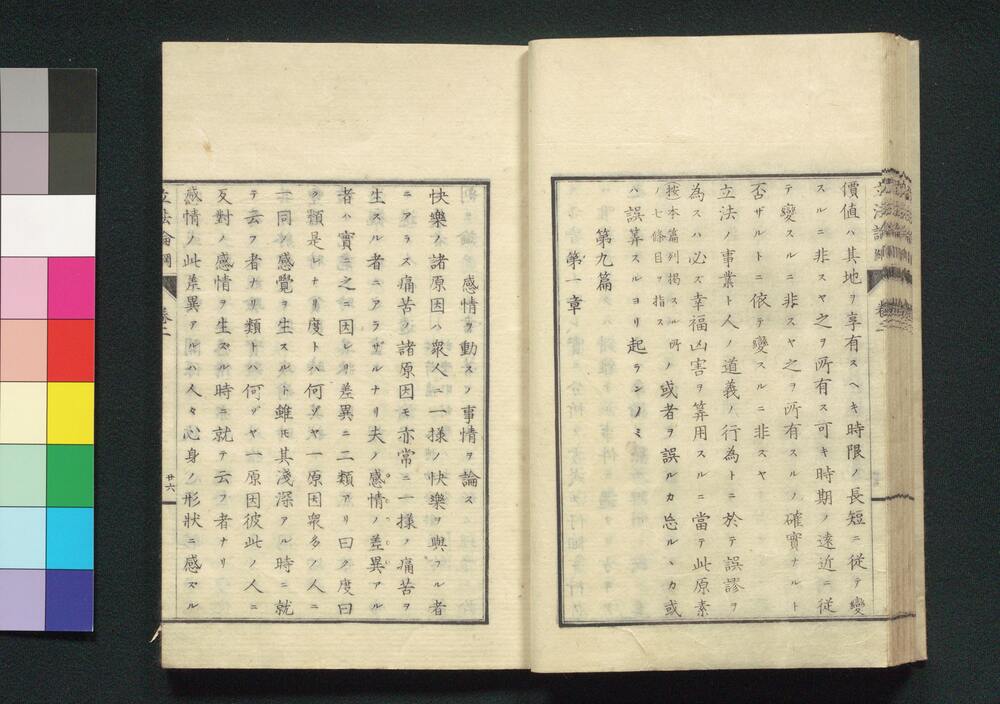 價値ハ其地ヲ享有スヘキ時限ノ長短ニ從テ變
スルニ非スヤ之ヲ所有ス可キ時期ノ遠近ニ從
テ變スルニ非スヤ之ヲ所有スルノ確實ナルト
否ザルトニ依テ變スルニ非スヤ
立法ノ事業ト人ノ道義ノ行為トニ於テ誤謬ヲ
為スハ必ズ幸福凶害ヲ算用スルニ當テ此原素
按本篇列揭スル所
ノ七條目ヲ指ス
ノ或者ヲ誤ルカ忽ルヽカ或
ハ誤算スルヨリ起ランノミ
第九篇
第一章
感情ヲ動スノ事情ヲ論ス
快樂ノ諸原因ハ衆人ニ一様ノ快樂ヲ與フル者
ニアラス痛苦ノ諸原因モ亦常ニ一様ノ痛苦ヲ
生スル者ニアラザルナリ夫ノ感情ノ差異アル
者ハ實ニ之ニ因レリ差異ニ二類アリ曰ク度曰
ク類是レナリ度トハ何ゾヤ一原因衆多ノ人ニ
一同ノ感覺ヲ生スルト雖モ其淺深アル時ニ就
テ云フ者ナリ類トハ何ゾヤ一原因彼此ノ人ニ
反對ノ感情ヲ生ズル時ニ就テ云フ者ナリ
感情ノ此差異アルハ人々心身ノ形狀ニ感ズル
立法論綱
卷二
廿六